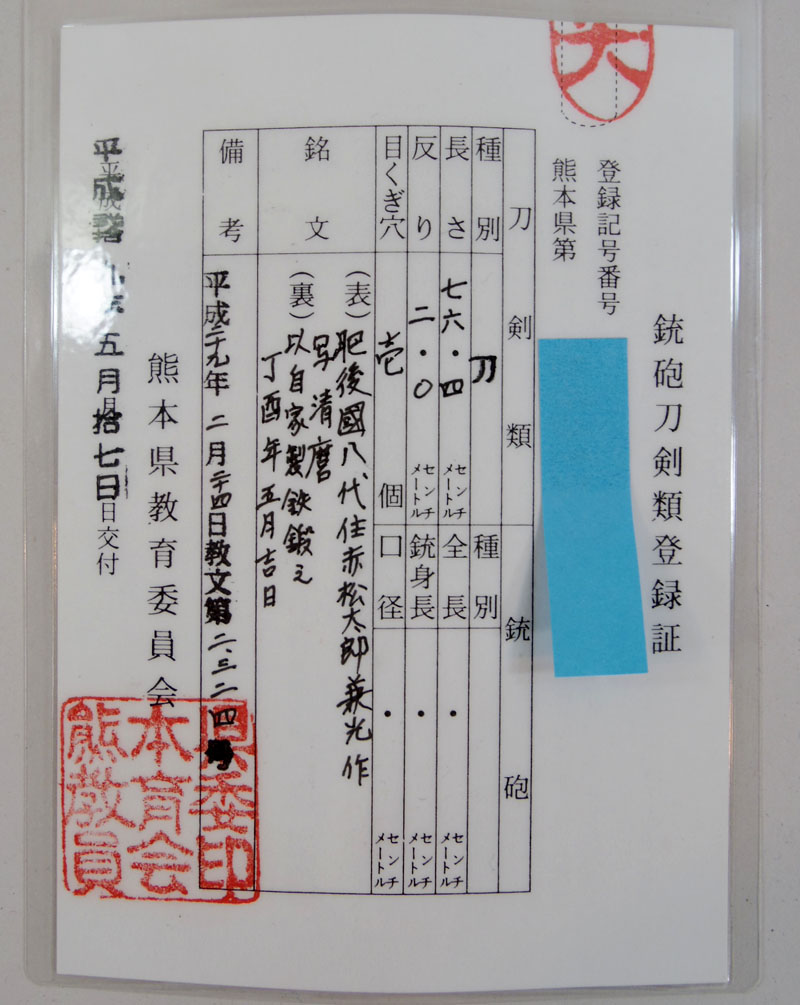 銃砲刀剣類登録証
登録記号番号
熊本県第
刀剣類
銃砲
種別
刀
種別
長さ
七六・四
センチメートル
全長
・
センチメートル
反り
二・〇
センチメートル
銃身長
・
センチメートル
目くぎ穴
壱
個
口径
・
センチメートル
銘文
(表)肥後國八代住赤松太郎兼光作
写清麿
(裏)以自家製鉄鍛之
丁酉年五月吉日
備考
平成二十九年二月二十四日教文第二、三二四号
熊本県教育委員会
五月拾七日
日交付
熊本県
教育委
員会印